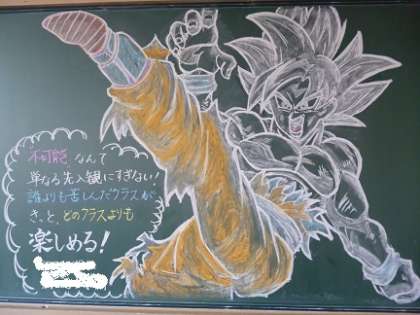 不可能なんて
単なる先入観にすぎない!
誰よりも苦しんだクラスが
きっと、どのクラスよりも
楽しめる!